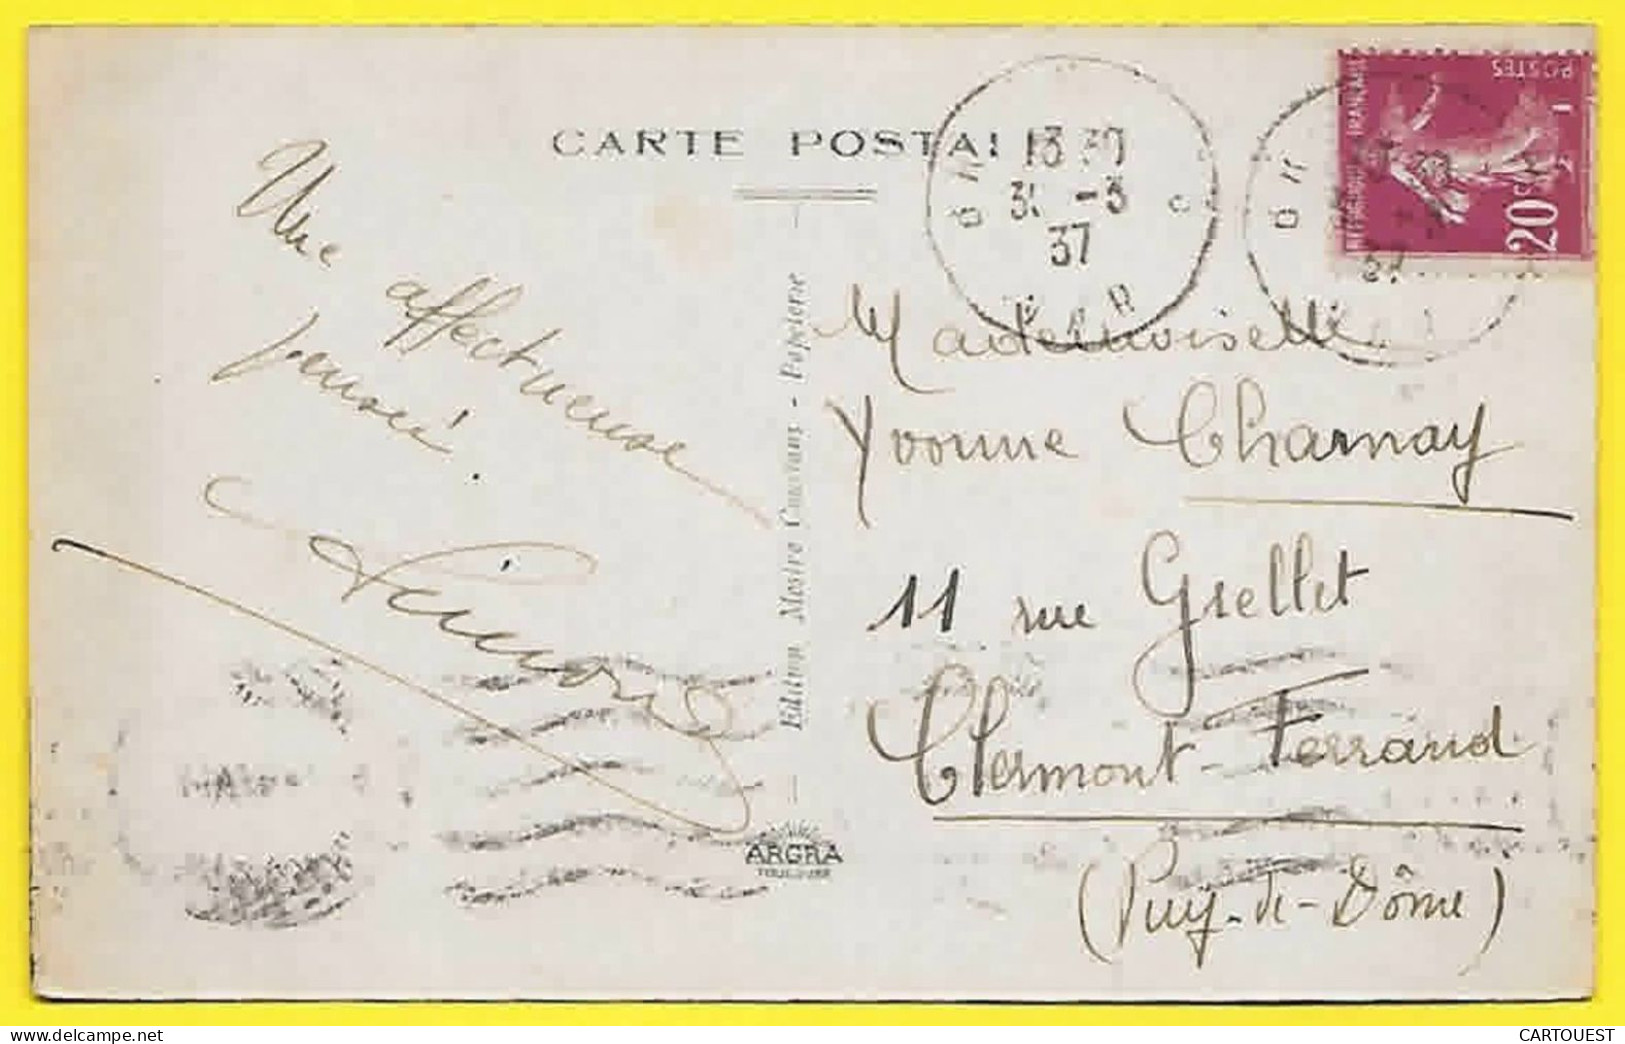 CARTE POSTALE
Une
affectueuse
pensée.
Edition Mestre Conorans - Papeterie
ARGRA
TOULOUSE
13 30
31 -3
37
VAR
POSTES
REPUBLIQUE FRANÇAISE
20c
Mademoiselle
Yvonne Charnay
11 rue Grellet
Clermont-Ferrand
(Puy-de-Dôme)
CARTOUEST